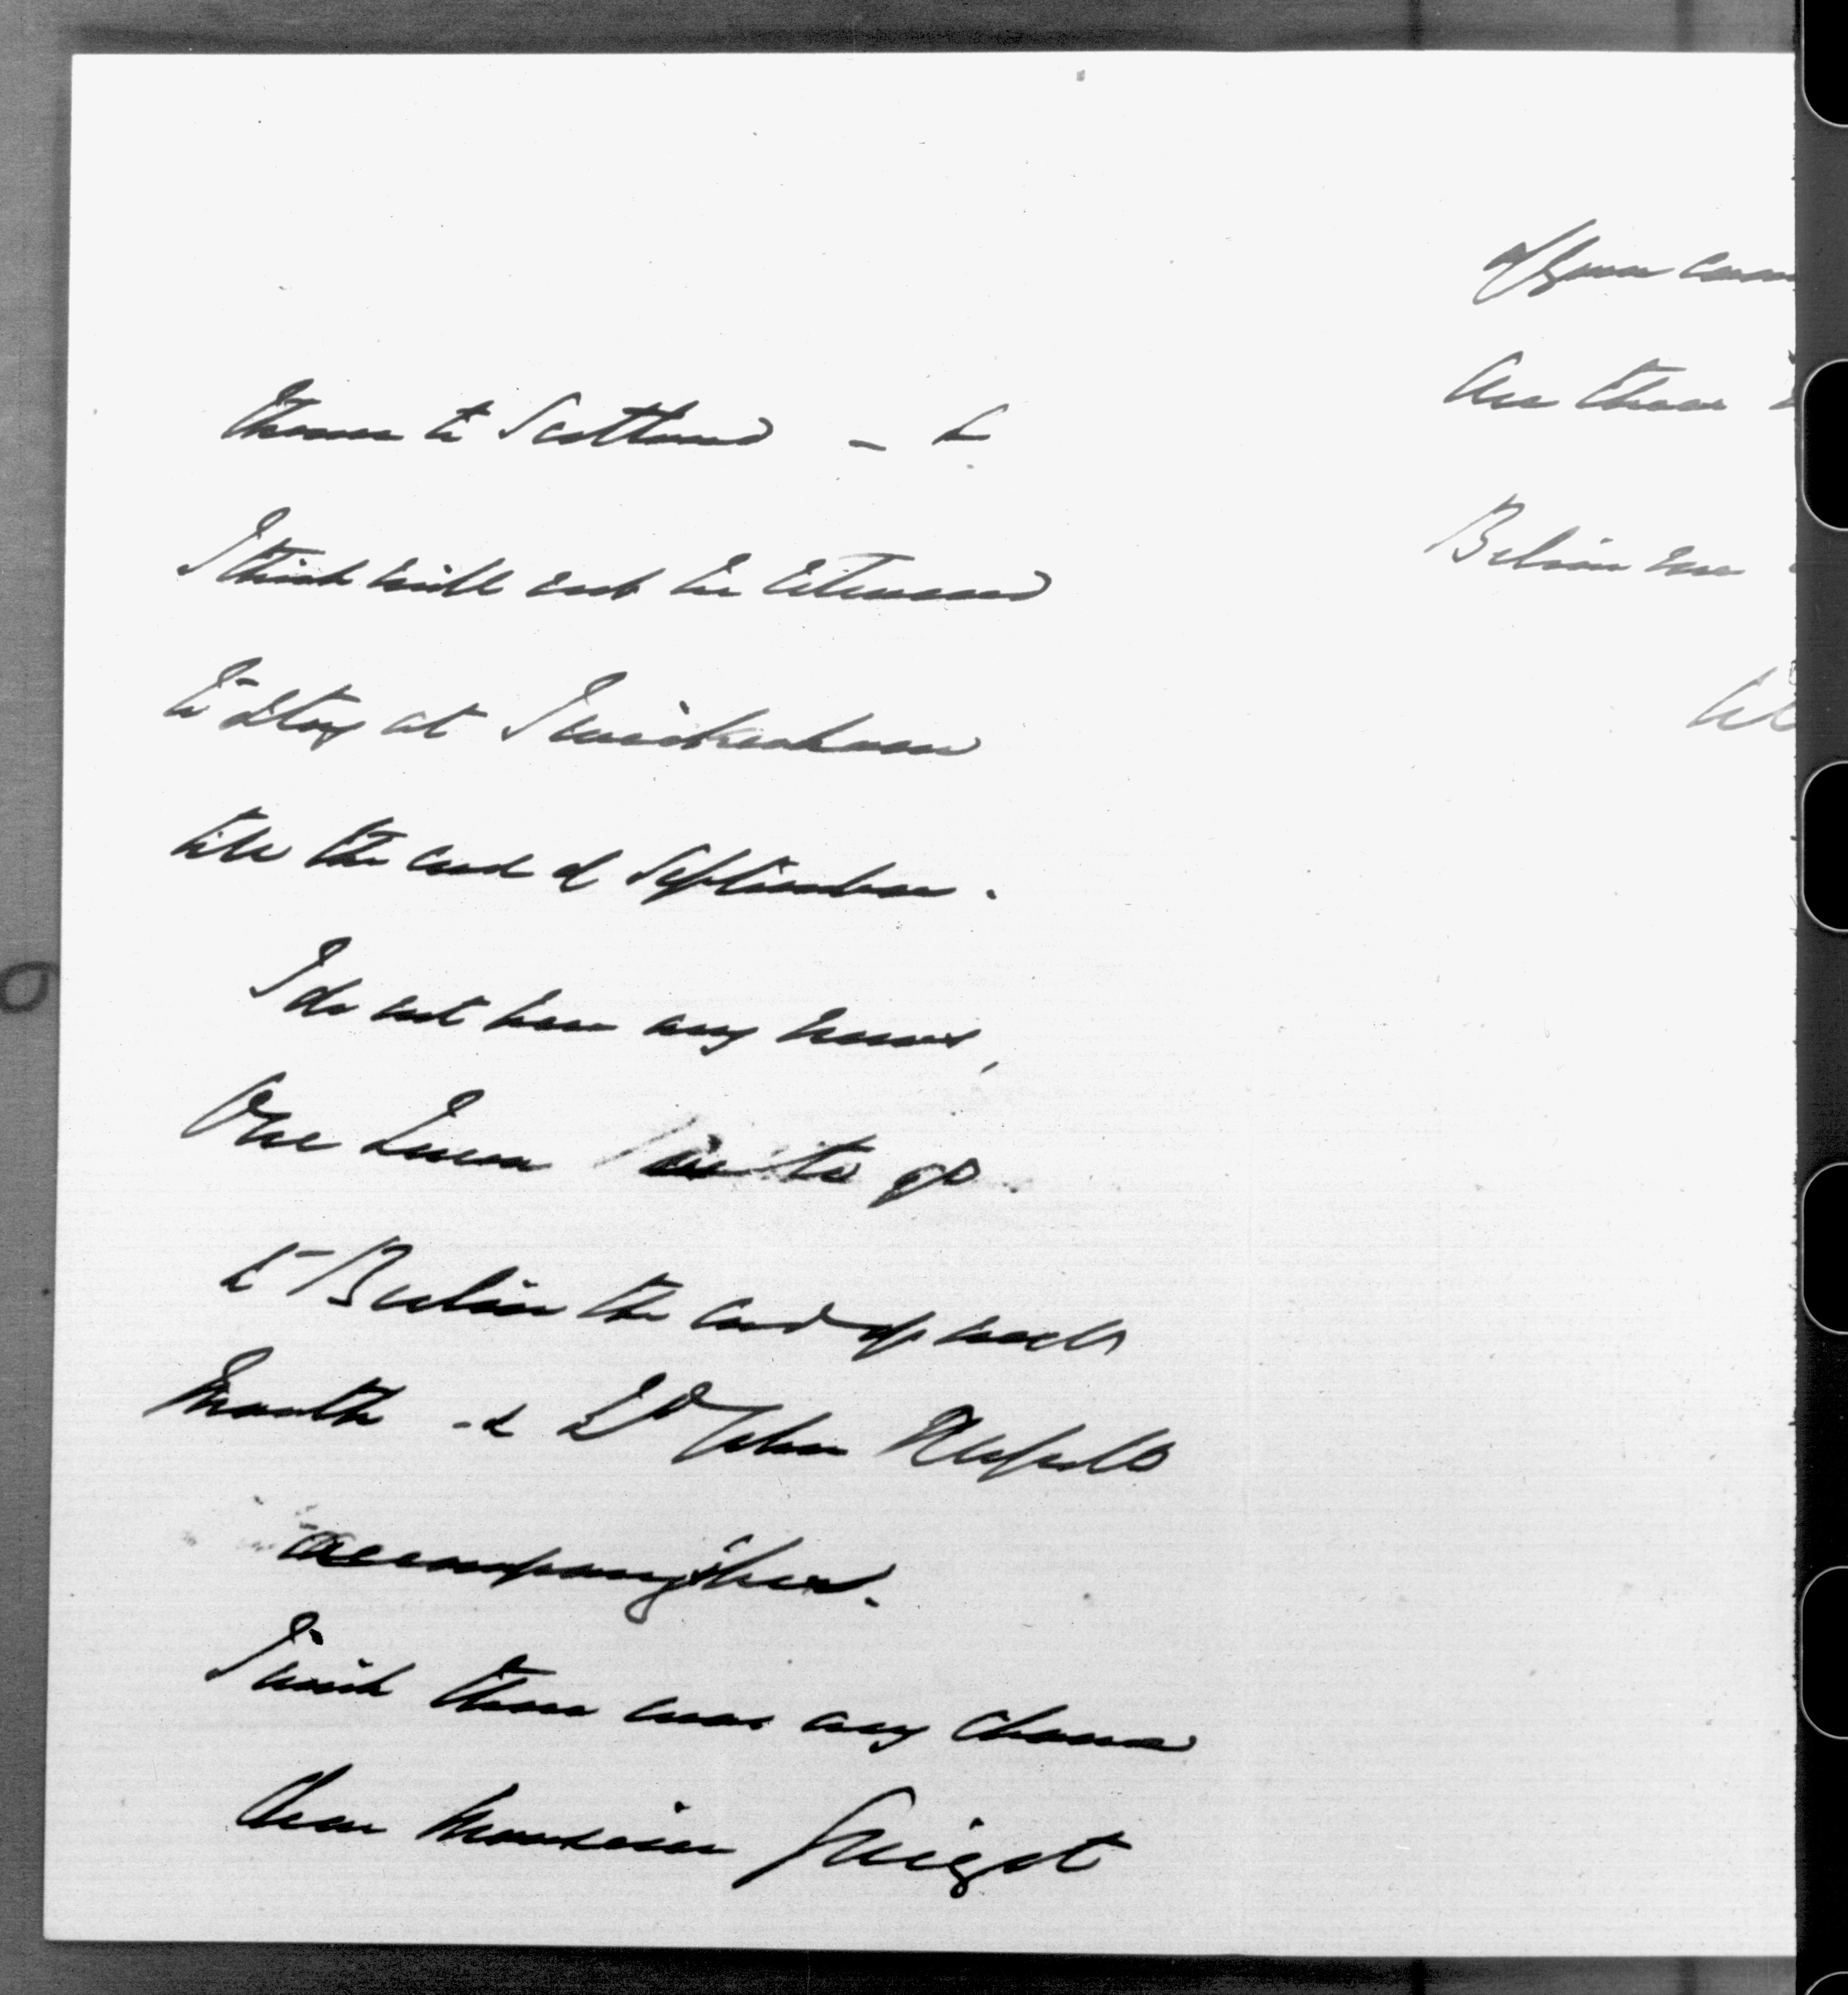 thence to Scotland – &
I think will not be
to stay at Twickenham
till the end of September.
I do not hear any news,
The Queen is to go
to Berlin the end of next
Month - & Ld John Russell
accompanies her.
I wish there was any chance
dear Monsieur Guizot
of your
are there
Believe me